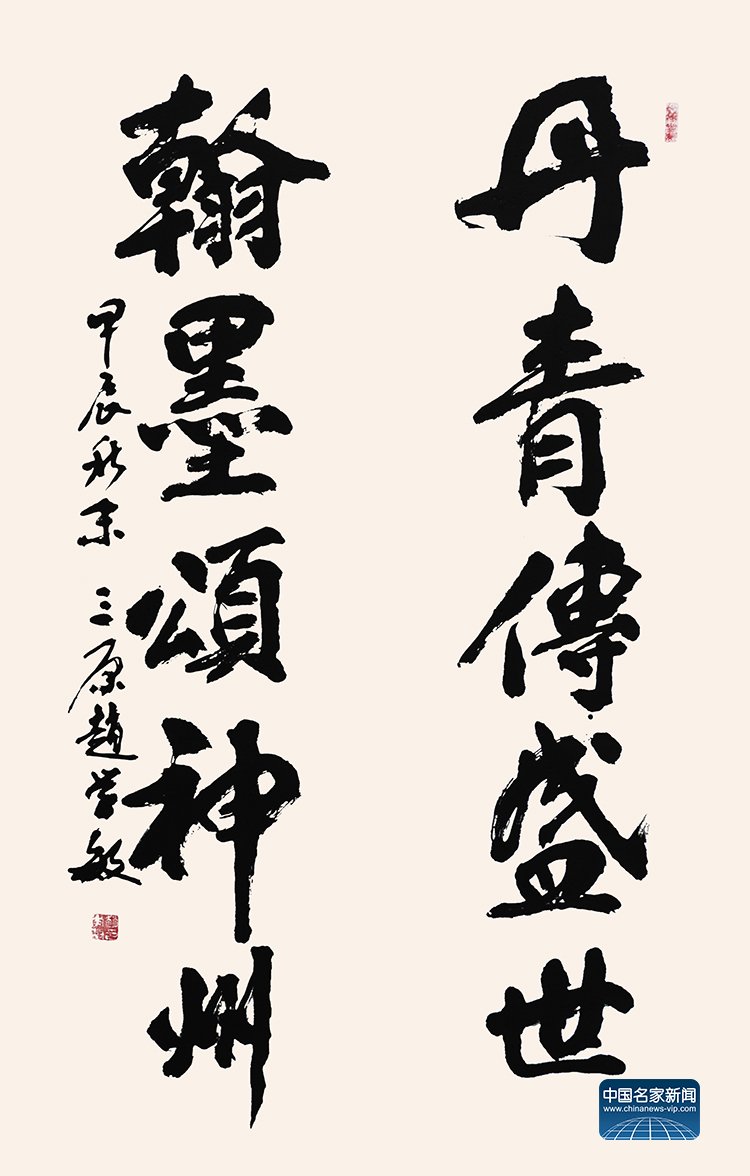 丹青傳盛世
翰墨頌神州
甲辰秋末 三原趙学敏
中国名家新闻
www.chinanews-vip.com